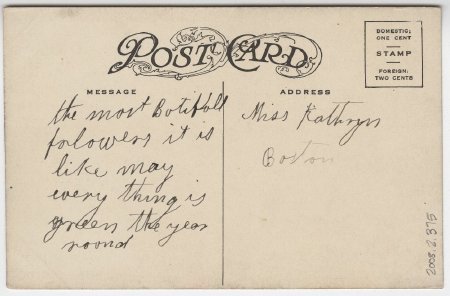 POST CARD
DOMESTIC:
ONE CENT
STAMP
FOREIGN:
TWO CENTS
MESSAGE
ADDRESS
the most Botifull
folowers it is
like may
every thing is
green the year
round
Miss Kathryn
Boston
2008.2.375